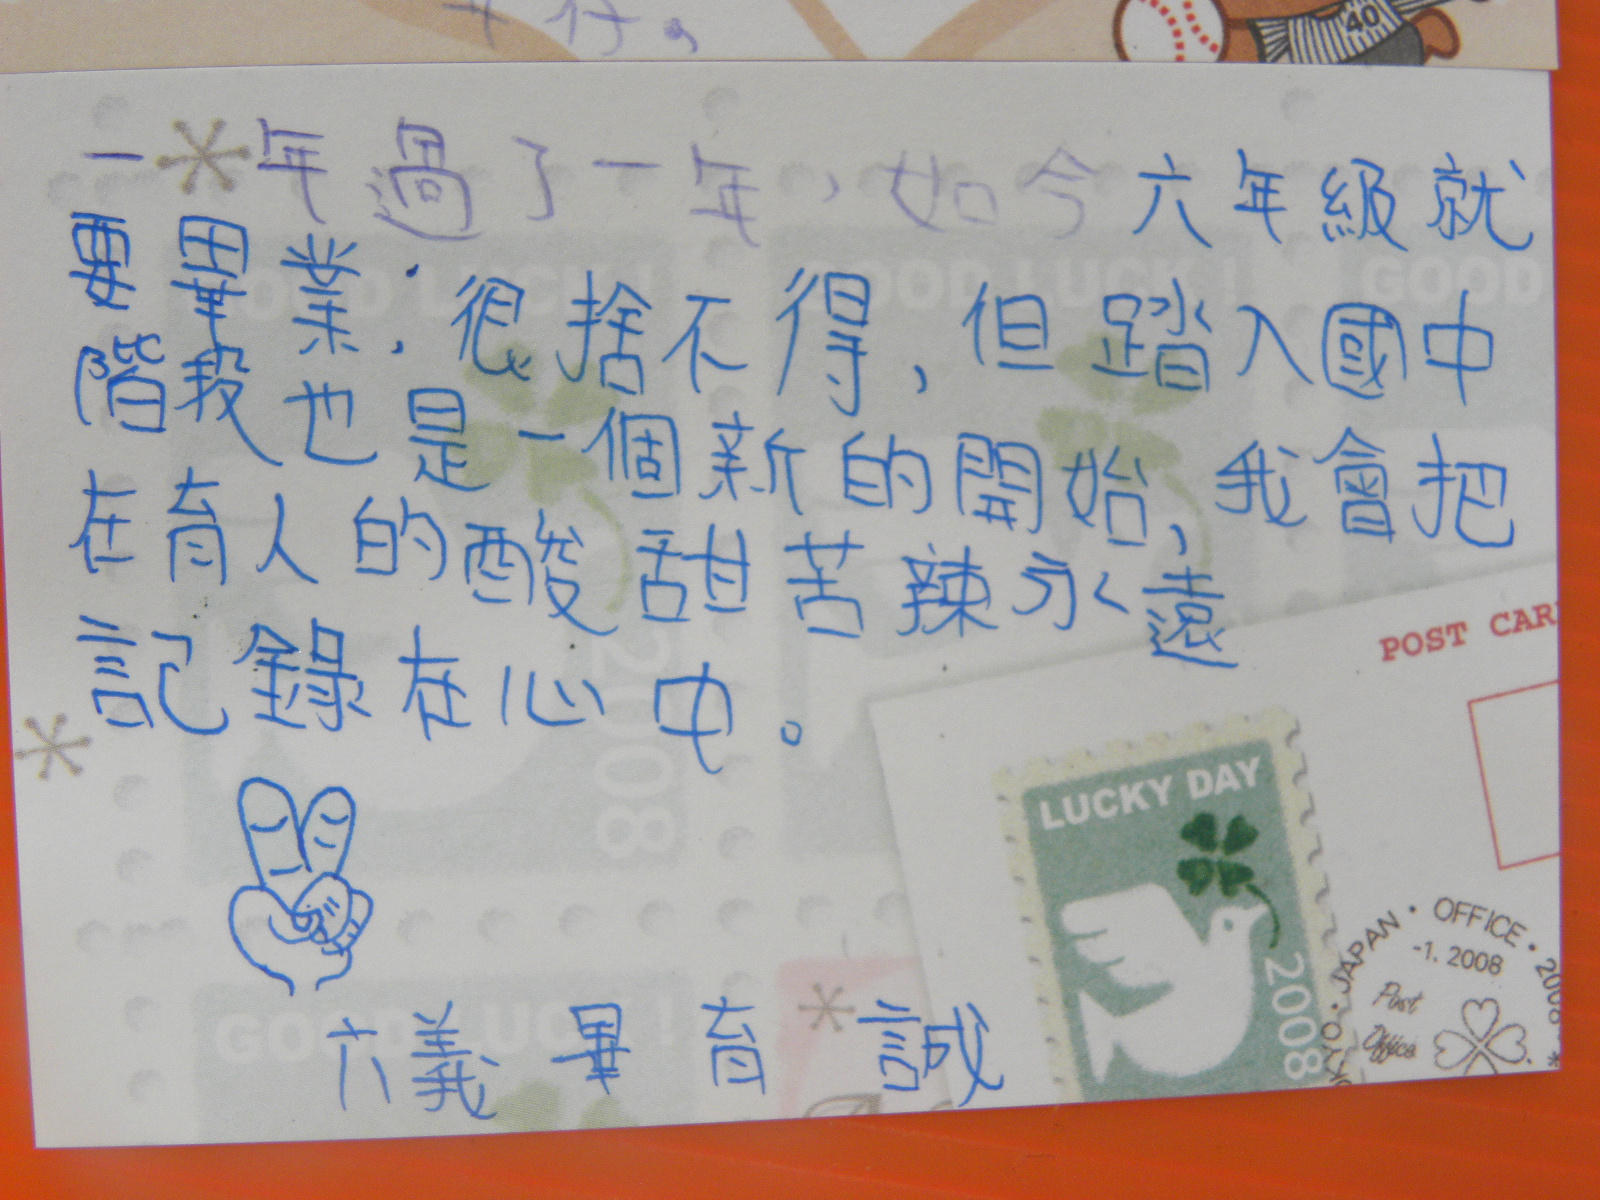 一年過了一年，如今六年級就
要畢業，很捨不得，但踏入國中
階段也是一個新的開始，我會把
在育人的酸甜苦辣永遠
記錄在心中。
六義 畢育誠
40
GOOD LUCK!
GOOD LUCK!
GOOD
2008
GOOD LUCK!
POST CAR
LUCKY DAY
2008
JAPAN · OFFICE · 2008
-1. 2008
Post
Office